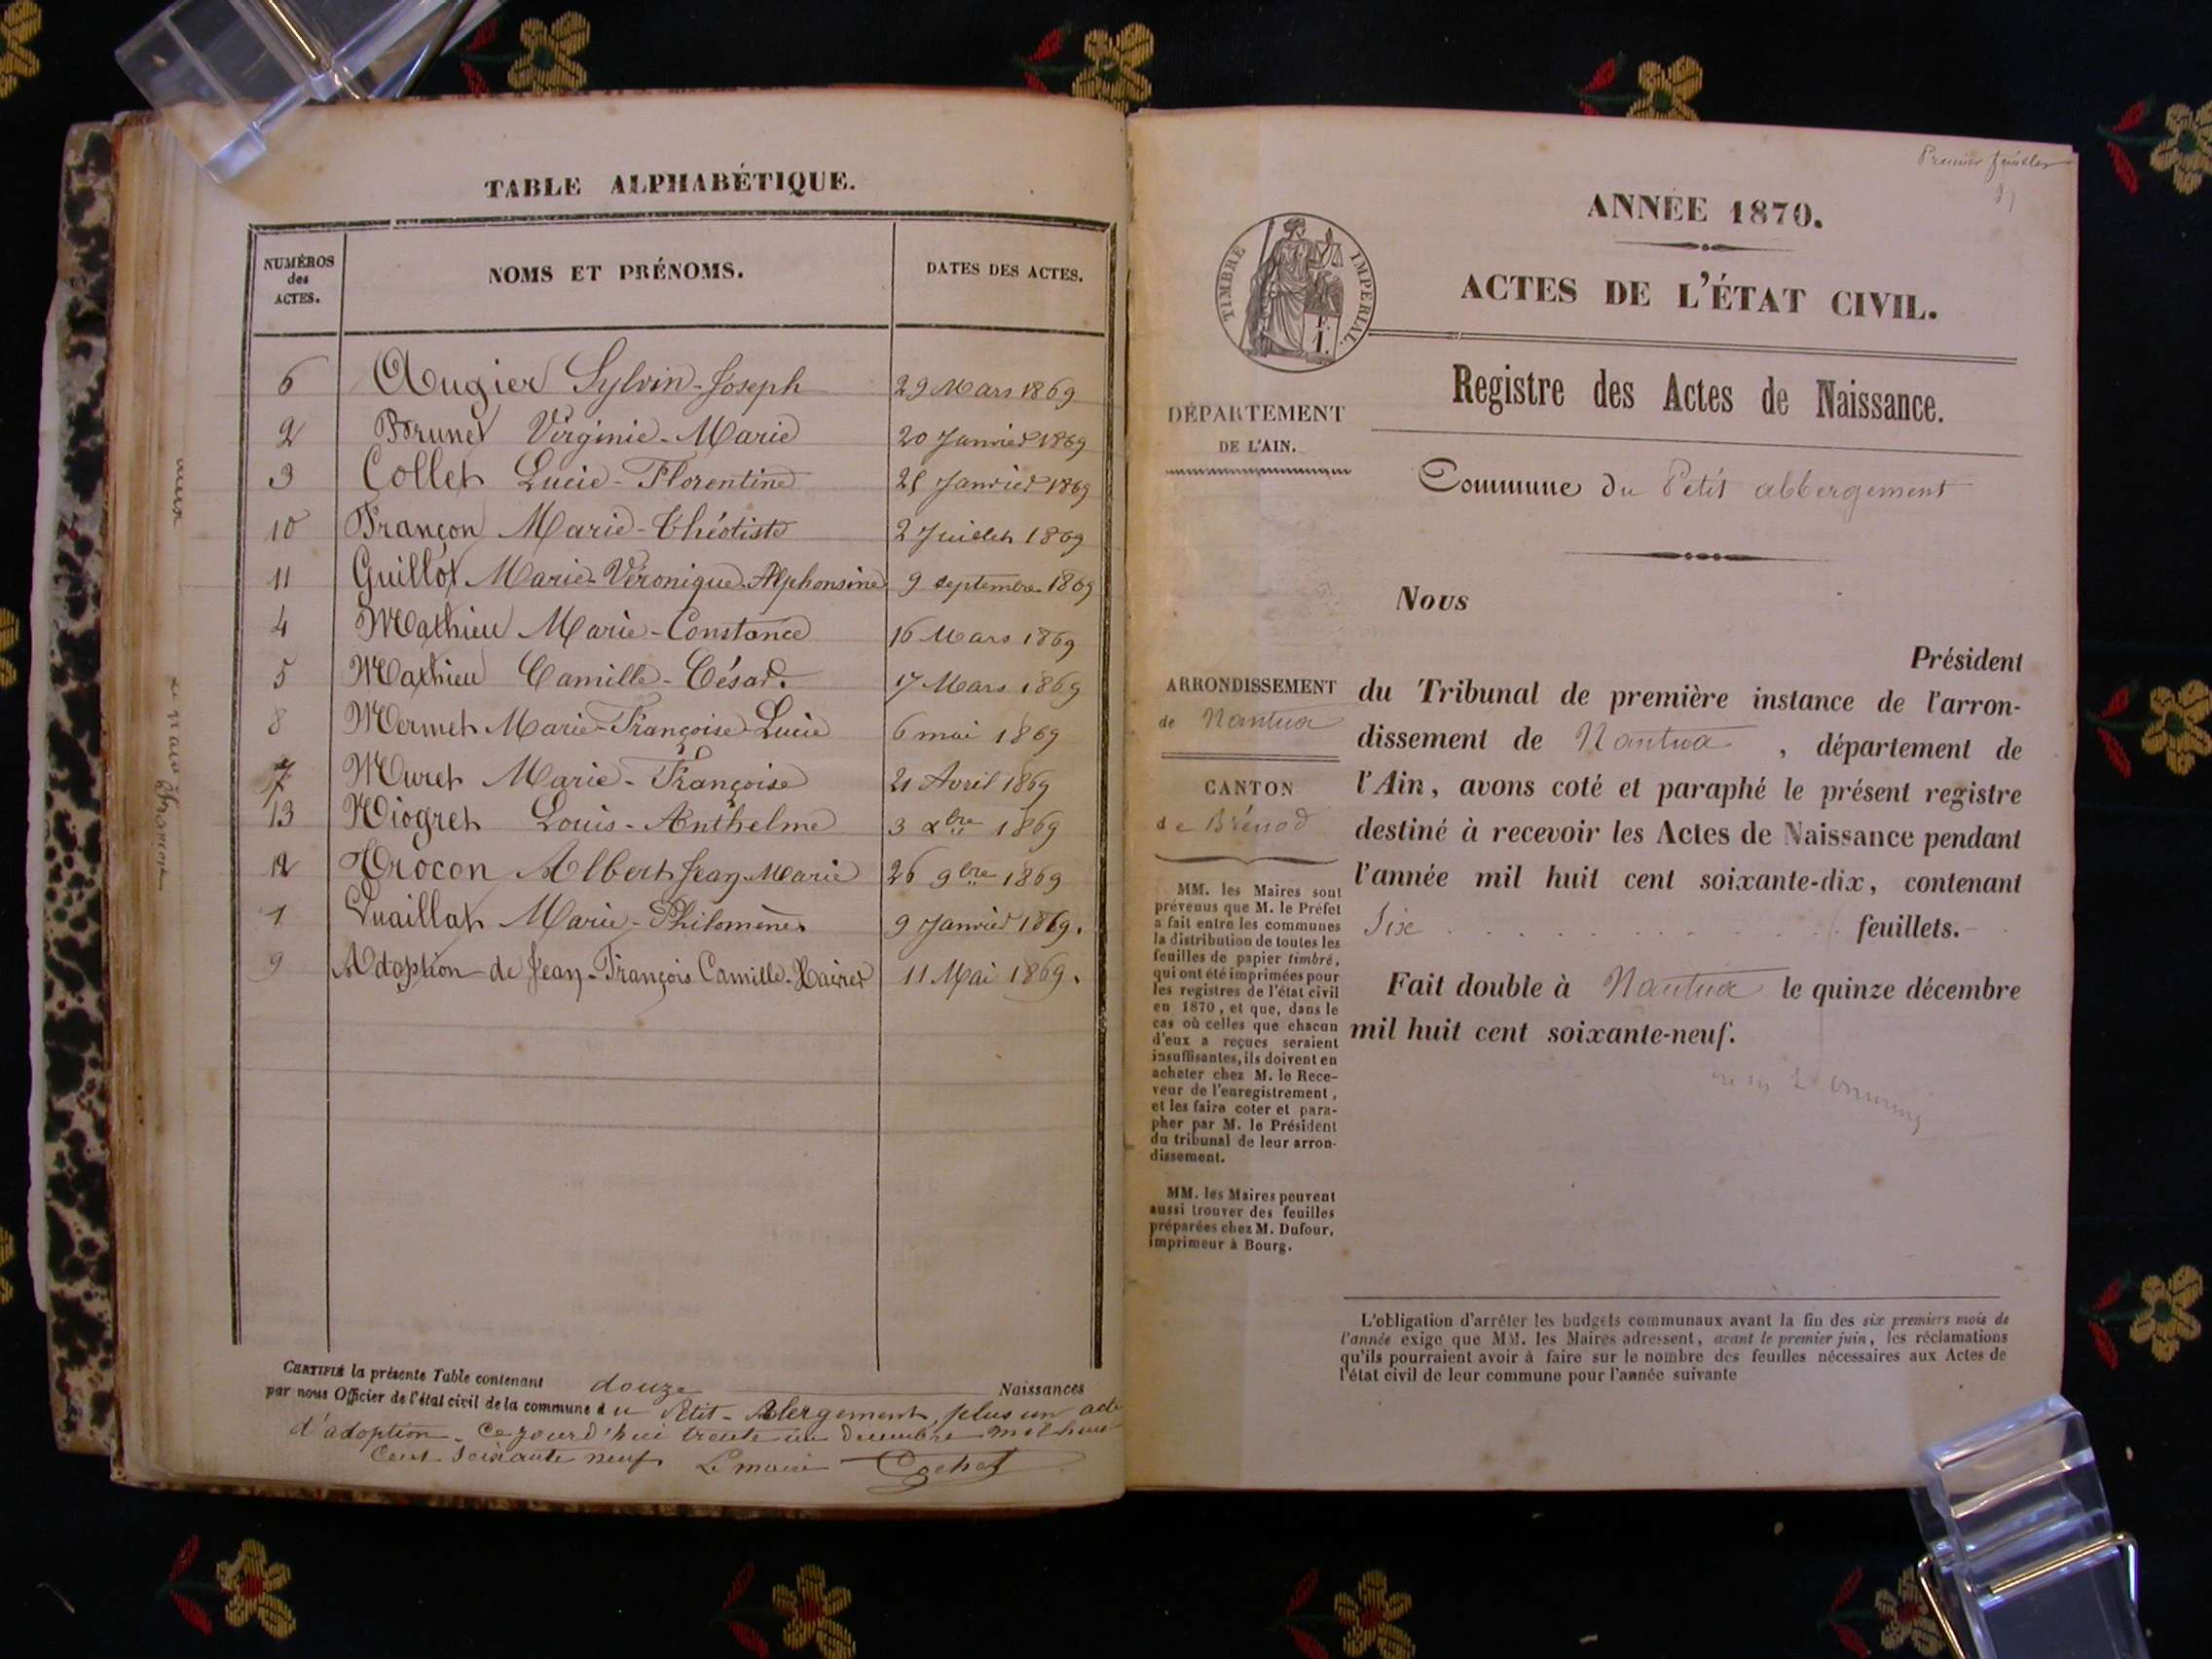 TABLE ALPHABÉTIQUE.
NUMÉROS
des
ACTES.
NOMS ET PRÉNOMS.
DATES DES ACTES.
6 Augier Sylvin-Joseph 29 Mars 1869
2 Brunet Virginie-Marie 20 Janvier 1869
3 Collet Lucie-Florentine Janvier 1869
10 Françon Marie-Théotiste 2 Juillet 1869
11 Guillot Marie-Véronique-Alphonsine 9 septembre 1869
4 Mathieu Marie-Constance 16 Mars 1869
5 Mathieu Camille-César. 17 Mars 1869
8 Mermet Marie-Françoise-Lucie 6 mai 1869
7 Muret Marie-Françoise 21 Avril 1869
13 Niogret Louis-Anthelme 3 xbre 1869
12 Trocon Albert Jean-Marie 26 9bre 1869
1 Vuaillat Marie-Philomène 9 Janvier 1869.
9 Adoption de Jean-François Camille 11 Mai 1869.
CERTIFIÉ la présente Table contenant douze Naissances
par nous Officier de l'état civil de la commune du Petit-Abergement, plus un acte
d'adoption. Ce jourd'hui trente un décembre mil huit
cent soixante neuf Le maire Cochet
Premier feuillet
ANNÉE 1870.
ACTES DE L'ÉTAT CIVIL.
TIMBRE IMPÉRIAL.
Registre des Actes de Naissance.
DÉPARTEMENT
DE L'AIN.
Commune du Petit abbergement
Nous
Président
ARRONDISSEMENT
de Nantua
CANTON
de Brénod
du Tribunal de première instance de l'arron-
dissement de Nantua, département de
l'Ain, avons coté et paraphé le présent registre
destiné à recevoir les Actes de Naissance pendant
l'année mil huit cent soixante-dix, contenant
Six feuillets.
Fait double à Nantua le quinze décembre
mil huit cent soixante-neuf.
MM. les Maires sont
prévenus que M. le Préfet
a fait entre les communes
la distribution de toutes les
feuilles de papier timbré,
qui ont été imprimées pour
les registres de l'état civil
en 1870, et que, dans le
cas où celles que chacun
d'eux a reçues seraient
insuffisantes, ils doivent en
acheter chez M. le Rece-
veur de l'enregistrement,
et les faire coter et para-
pher par M. le Président
du tribunal de leur arron-
dissement.
MM. les Maires peuvent
aussi trouver des feuilles
préparées chez M. Dufour,
imprimeur à Bourg.
L'obligation d'arrêter les budgets communaux avant la fin des six premiers mois de
l'année exige que MM. les Maires adressent, avant le premier juin, les réclamations
qu'ils pourraient avoir à faire sur le nombre des feuilles nécessaires aux Actes de
l'état civil de leur commune pour l'année suivante